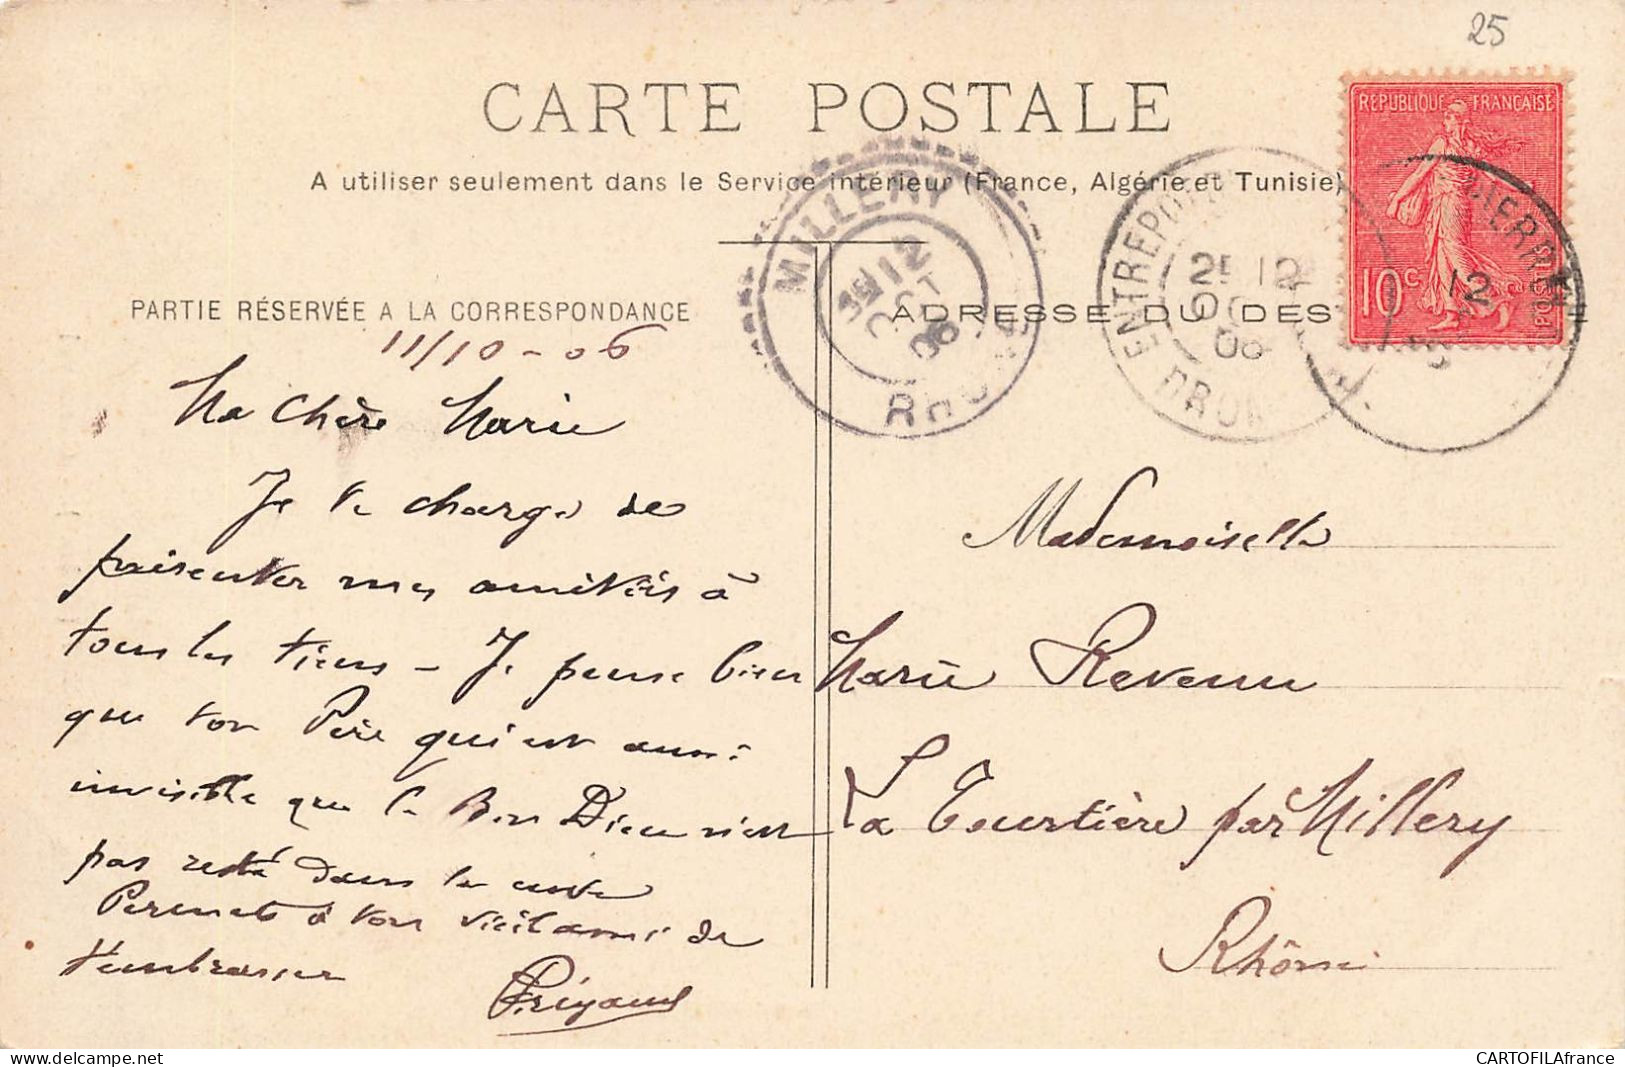 25
CARTE POSTALE
A utiliser seulement dans le Service intérieur (France, Algérie et Tunisie)
REPUBLIQUE FRANÇAISE
10c
POSTES
MILLERY
12
OCT
06
RHONE
ENTREPOT
25 12
OC
06
PIERRE
12
PARTIE RÉSERVÉE A LA CORRESPONDANCE
ADRESSE DU DES
11/10-06
Ma chère Marie
Je te charge de
présenter mes amitiés à
tous les tiens - Je pense bien
que ton Père qui est aussi
invisible que le Bon Dieu n'est
pas resté dans la cuve
Permets à ton vieil ami de
t'embrasser
Mademoiselle
Marie Revenu
La Tourtière par Millery
Rhône
CARTOFILAfrance